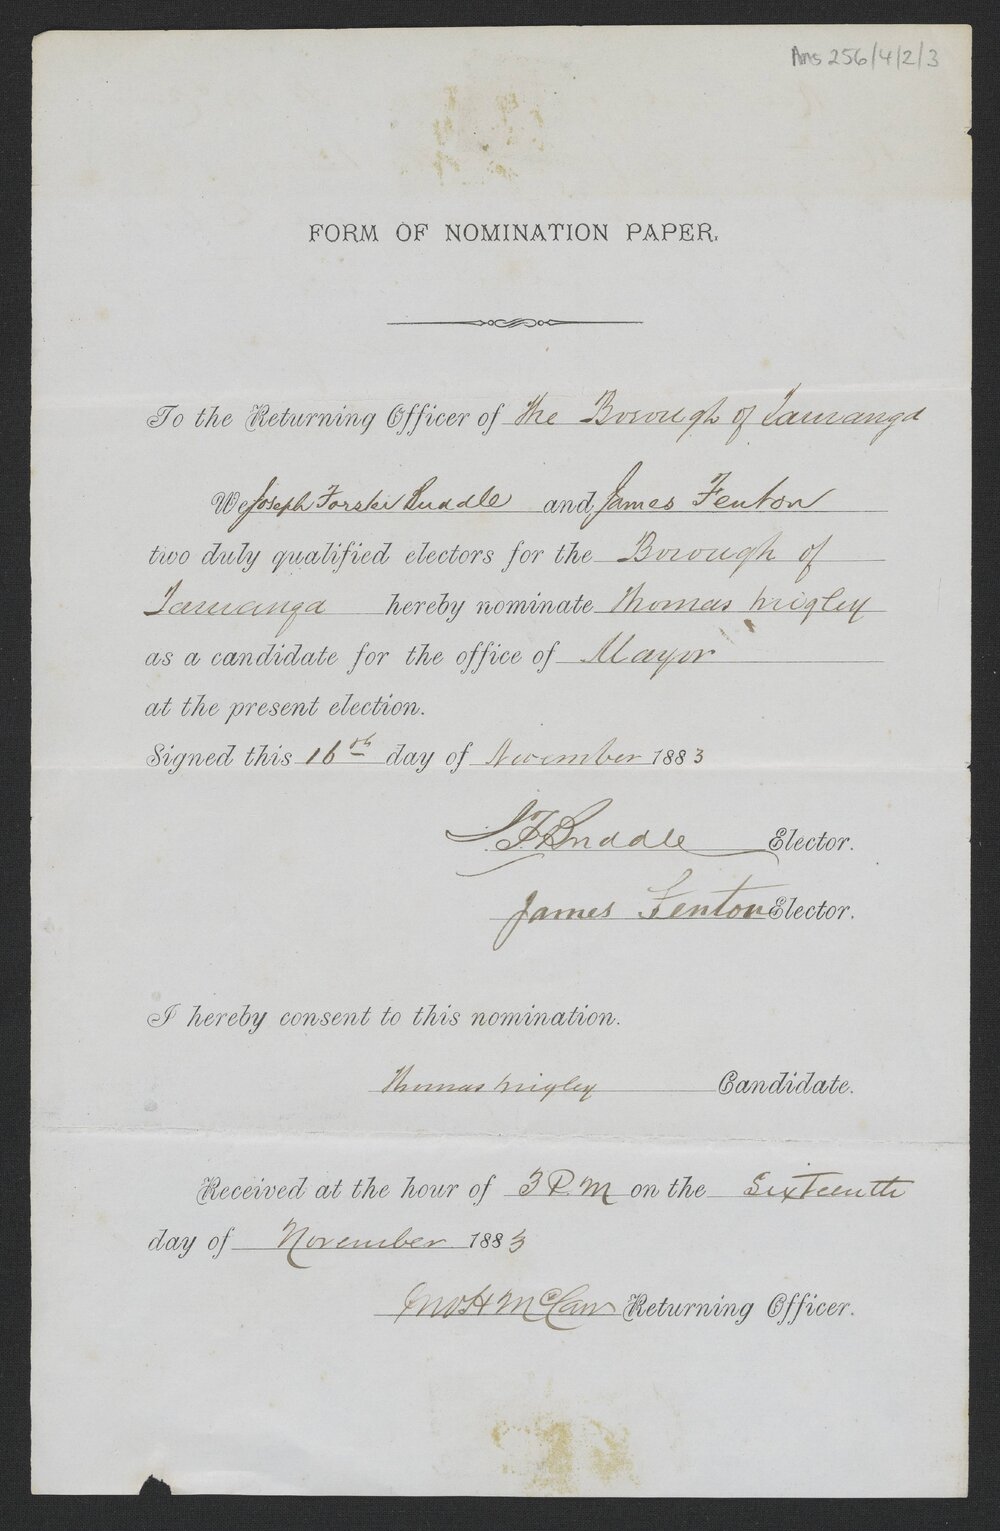 Ams 256/4/2/3
FORM OF NOMINATION PAPER.
To the Returning Officer of the Borough of Tauranga
We Joseph Buddle and James Fenton
two duly qualified electors for the Borough of
Tauranga hereby nominate Thomas Wrigley
as a candidate for the office of Mayor
at the present election.
Signed this 16th day of November 1883
J F Buddle Elector.
James Fenton Elector.
I hereby consent to this nomination.
Thomas Wrigley Candidate.
Received at the hour of 3 P.M on the Sixteenth
day of November 1883
Returning Officer.